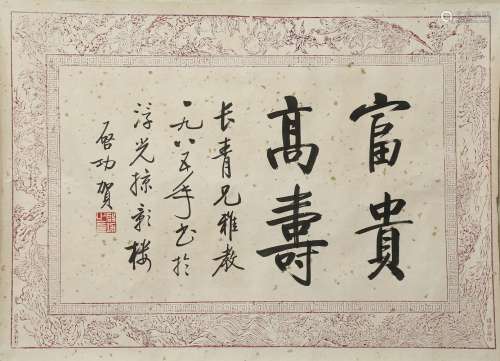 富貴
高壽
长青兄雅教
一九八五年书於
浮光掠影楼
启功贺